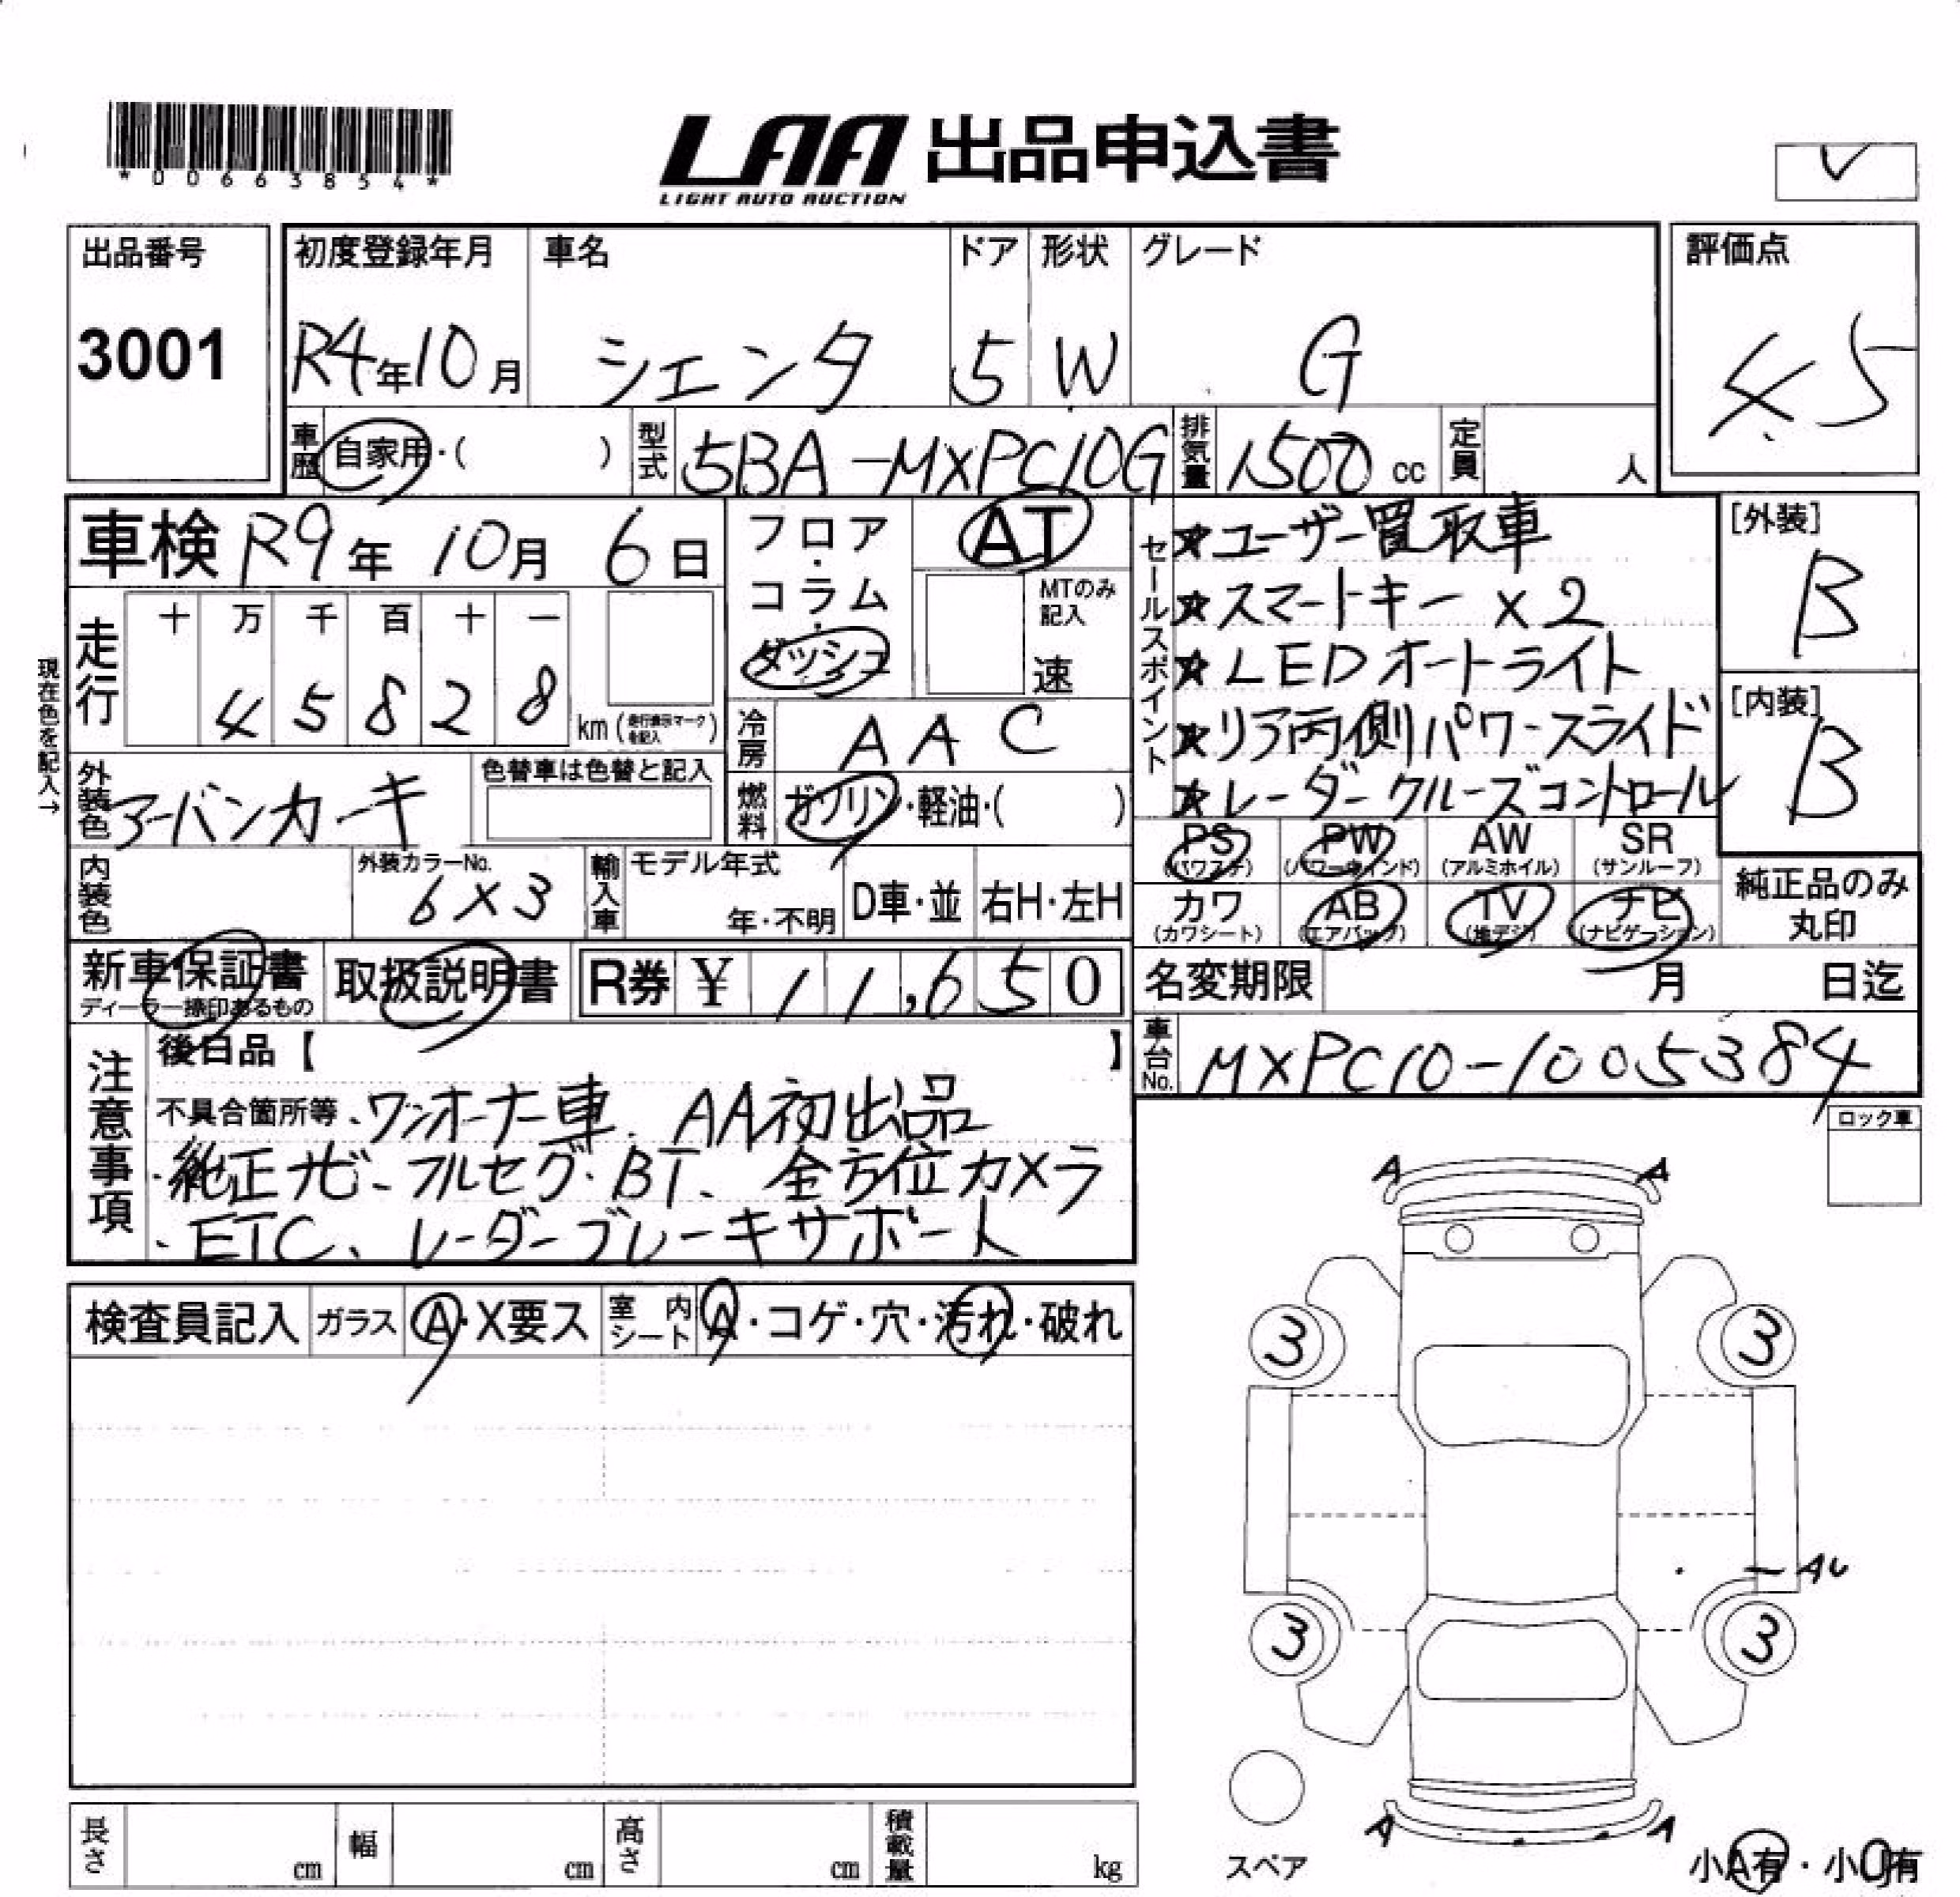 *00663854*
LAA 出品申込書
LIGHT AUTO AUCTION
出品番号
3001
初度登録年月
R4年10月
車名
シエンタ
ドア
5
形状
W
グレード
G
評価点
4.5
車歴 自家用・( )
型式 5BA-MXPC10G
排気量 1500 cc
定員 人
車検 R9年 10月 6日
フロア・コラム・ダッシュ
AT
MTのみ記入
速
セールスポイント
★ユーザー買取車
★スマートキー ×2
★LEDオートライト
★リア両側パワースライド
★レーダークルーズコントロール
[外装]
B
[内装]
B
現在色を記入→
走行
十 万 千 百 十 一
4 5 8 2 8 km (走行表示マークを記入)
冷房 AAC
燃料 ガソリン・軽油・( )
外装色 アーバンカーキ
色替車は色替と記入
内装色
外装カラーNo.
6X3
輸入車 モデル年式
年・不明
D車・並
右H・左H
PS (パワステ)
PW (パワーウィンド)
AW (アルミホイル)
SR (サンルーフ)
カワ (カワシート)
AB (エアバッグ)
TV (地デジ)
ナビ (ナビゲーション)
純正品のみ
丸印
新車保証書
ディーラー捺印あるもの
取扱説明書
R券 ¥ 11,650
名変期限 月 日迄
車台No. MXPC10-1005384
注意事項
後日品【 】
不具合箇所等、ワンオーナー車、AA初出品
・純正ナビ、フルセグ、BT、全方位カメラ
・ETC、レーダーブレーキサポート
ロック車
検査員記入 ガラス A・X要ス 室内シート A・コゲ・穴・汚れ・破れ
A A
3 3
AU
3 3
A A
スペア
小A有・小U有
長さ cm 幅 cm 高さ cm 積載量 kg